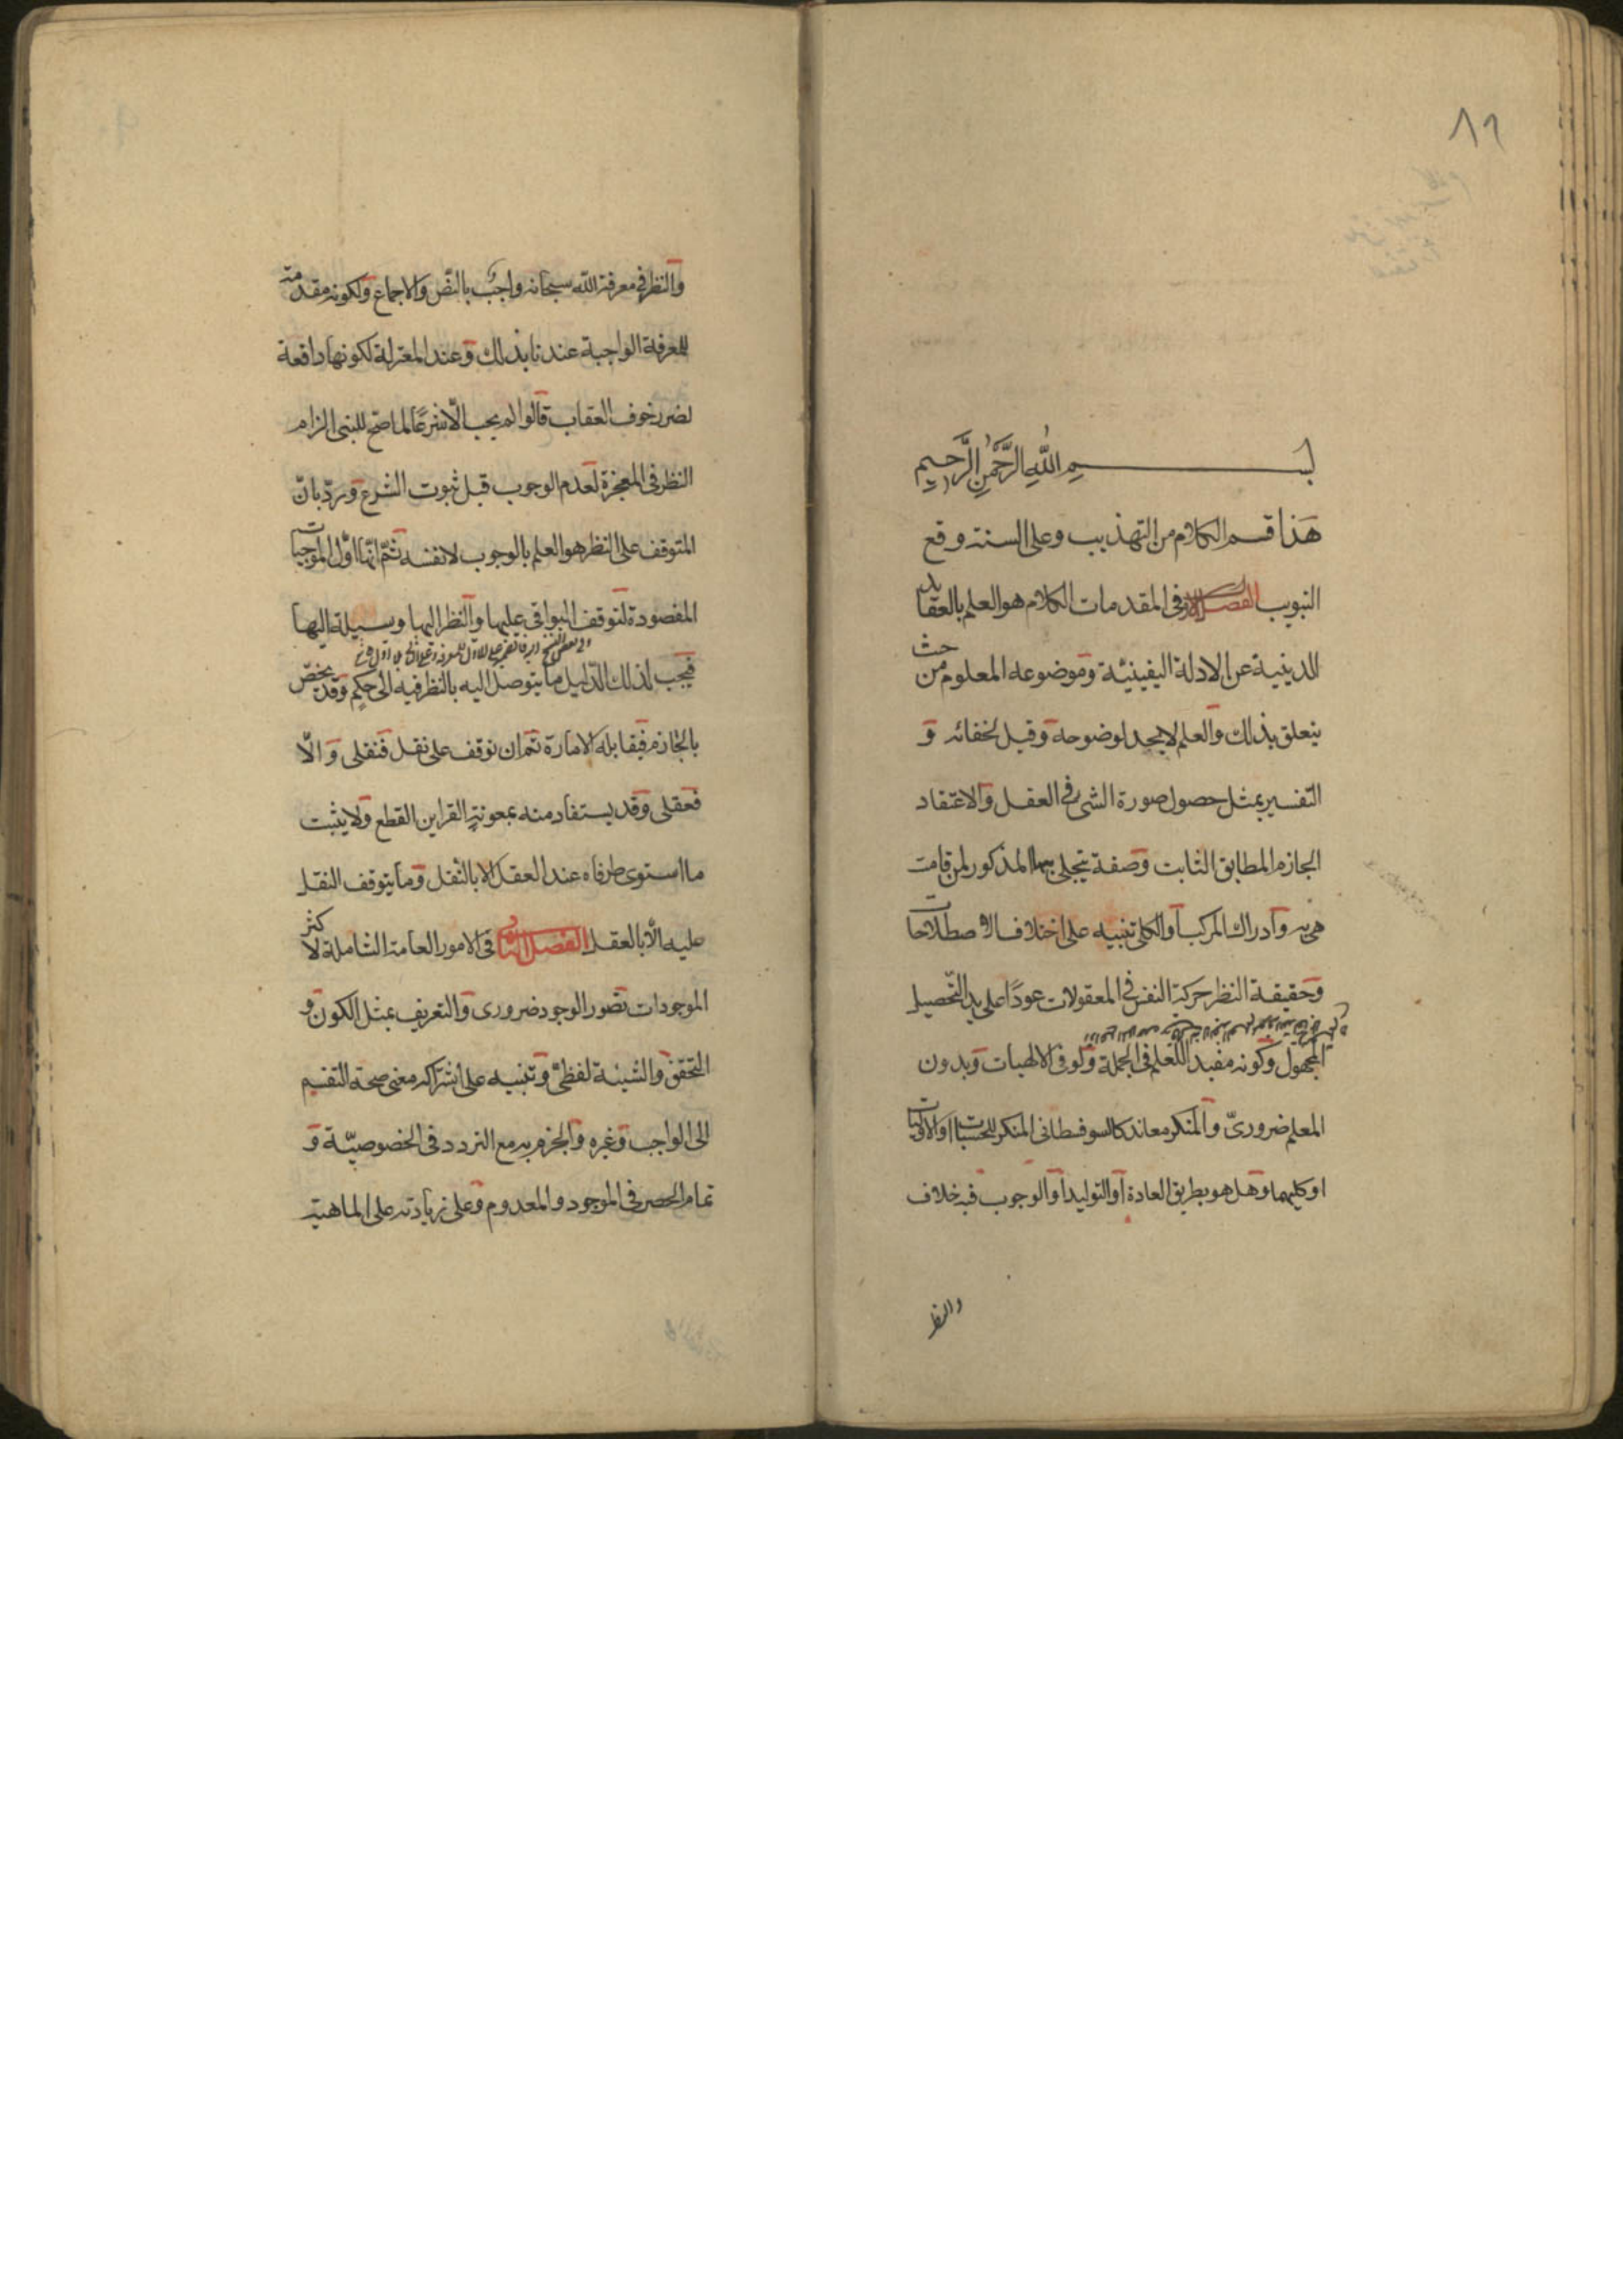 ٨٩
بســـــم الله الرَّحْمٰنِ الرَّحِيمِ
هَذا قسم الكلام من التهذيب وعلى السنة وقع
التبويب الفصل الاول فى المقدمات الكلام هو العلم بالعقايد
الدينية عن الادلة اليقينيّة وموضوعه المعلوم من حيث
يتعلق بذلك والعلم لا يحد لوضوحه وقيل لخفائه و
التفسير بمثل حصول صورة الشئ فى العقل والاعتقاد
الجازم المطابق الثابت وصفة يتجلى بها المذكور لمن قامت
هى به وادراك المركب أو الكلى تنبيه على اختلاف الاصطلاحات
وحقيقة النظر حركة النفس فى المعقولات عودًا على بدء لتحصيل
المجهول وكونه مفيد اللعلم فى الجملة ولو فى الالهيات وبدون
المعلم ضرورىّ والمنكر معاند كالسوفسطانى المنكر للحسيات او الاوليات
او كليهما وهل هو بطريق العادة أو التوليد أو الوجوب فيه خلاف
والنظر
والنظر فى معرفة الله سبحانه واجب بالنصّ والاجماع ولكونه مقدمة
للمعرفة الواجبة عندنا بذلك وعند المعتزلة لكونها دافعة
لضرر خوف العقاب قالوا لو لم يجب الّا شرعًا لما صحّ للنبى الزام
النظر فى المعجزة لعدم الوجوب قبل ثبوت الشرع وردّ بانّ
المتوقف على النظر هو العلم بالوجوب لا نفسه ثمّ انّها اوّل الموجبات
المقصودة لتوقف البواقى عليها والنظر اليها وسيلة اليها
فيجب لذلك الدّليل ما يتوصل اليه بالنظر فيه الى حكم وقد يخصّ
بالجازم فيقابله الامارة ثم ان توقف على نقل فنقلى والّا
فعقلى وقد يستفاد منه بمعونة القراين القطع ولا يثبت
ما استوى طرفاه عند العقل الا بالنقل وما يتوقف النقل
عليه الّا بالعقل الفصل الثانى فى الامور العامة الشاملة لاكثر
الموجودات تصور الوجود ضرورى والتعريف بمثل الكون و
التحقق والشيئية لفظىّ وتنبيه على اشتراكه معنى صحة التقسيم
الى الواجب وغيره والجزم به مع التردد فى الخصوصيّة و
تمام الحصر فى الموجود والمعدوم وعلى زيادته على الماهية